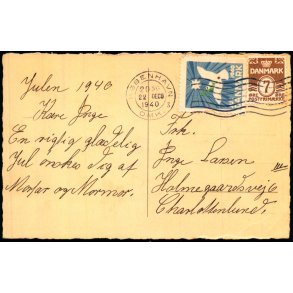 Julen 1940
Kære Inge
En rigtig glædelig
Jul ønskes dig af
Morfar og Mormor.
KØBENHAVN
22 DECD
1940
OMK
DANMARK
7
POSTFRIMÆRKE
Frk.
Inge Larsen
Holmegaardsvej 6
Charlottenlund.